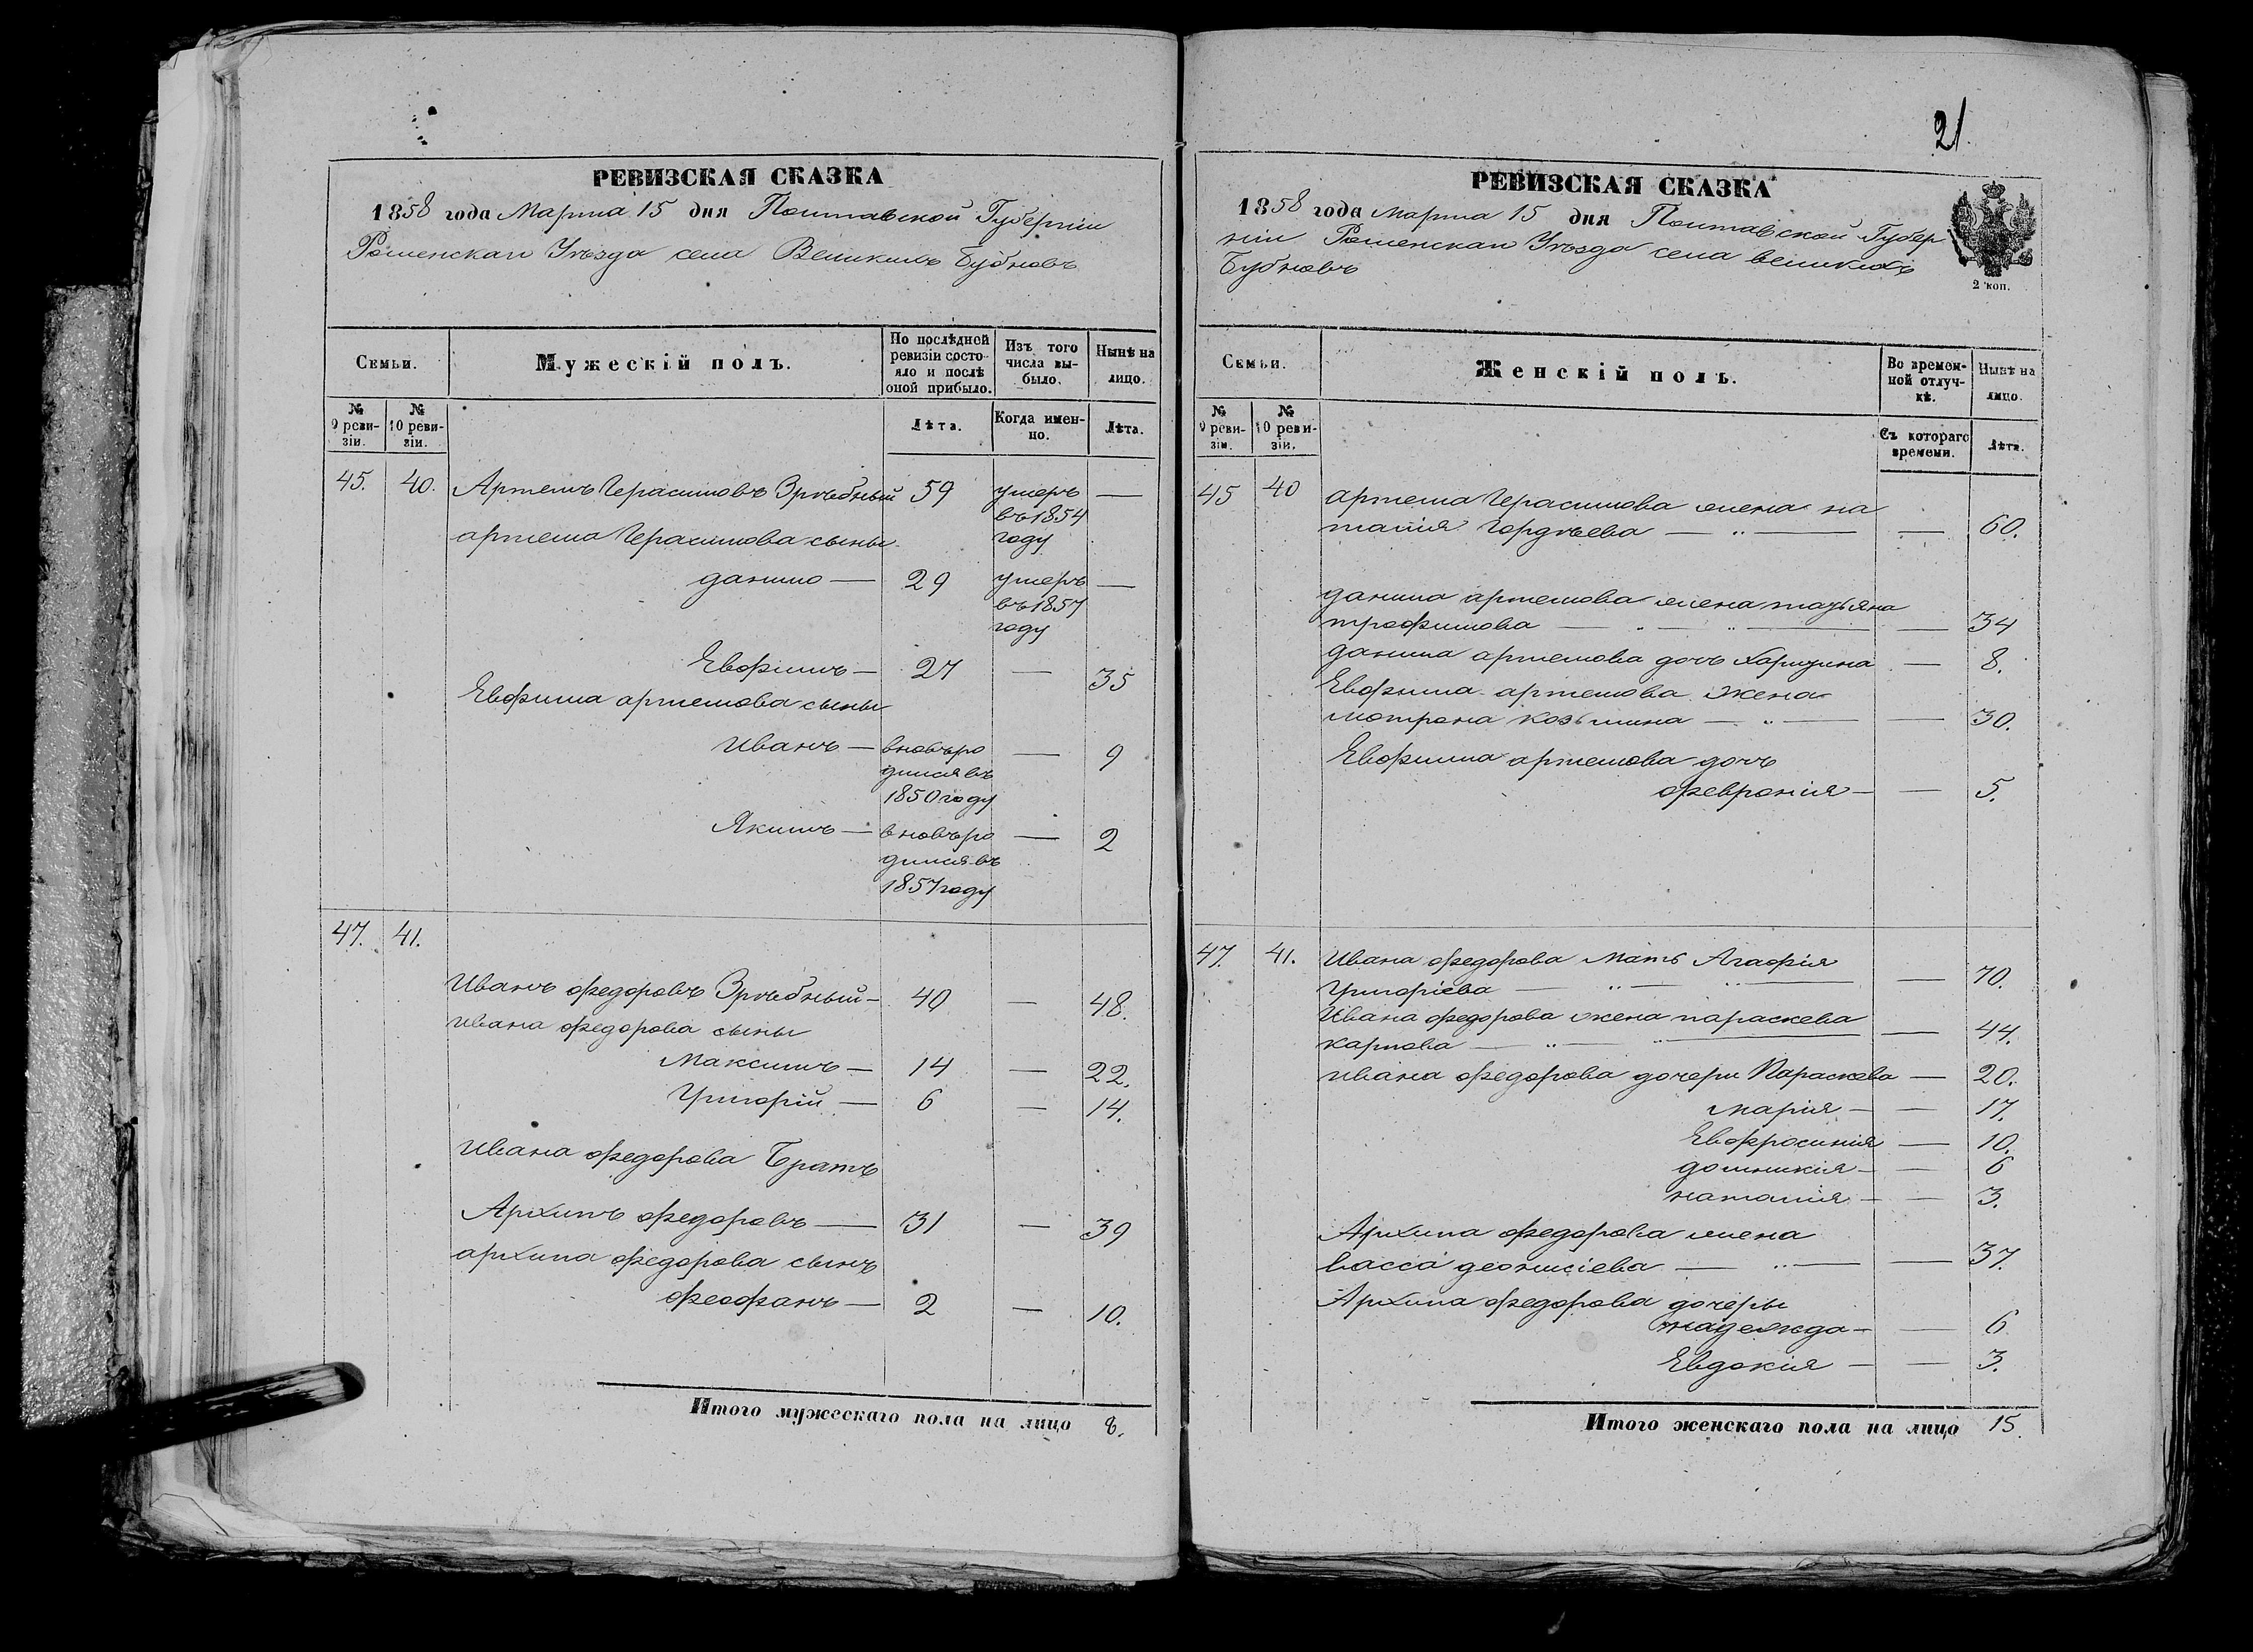 РЕВИЗСКАЯ СКАЗКА
1858 года Марта 15 дня Полтавской Губерніи
Роменскаго Уѣзда села Великихъ Бубновъ
Семьи.
Мужескій полъ.
По послѣдней ревизіи состояло и послѣ оной прибыло.
Изъ того числа выбыло.
Нынѣ на лицо.
№ 9 ревизіи.
№ 10 ревизіи.
Лѣта.
Когда именно.
Лѣта.
45. 40. Артемъ Герасимовъ 59 умеръ —
въ 1854
артема Герасимова сыны году
данило — 29 умеръ —
въ 1857
году
Евфимъ — 27 — 35
Евфима артемова сыны
Иванъ — вновь ро — 9
дился въ
1850 году
Якимъ — вновь ро — 2
дился въ
1857 году
47. 41.
Иванъ федоровъ — 40 — 48.
Ивана федорова сыны
Максимъ — 14 — 22.
Григорій — 6 — 14.
Ивана федорова Братъ
Архипъ федоровъ — 31 — 39
архипа федорова сынъ
феофанъ — 2 — 10.
Итого мужескаго пола на лицо 8.
21
РЕВИЗСКАЯ СКАЗКА
1858 года марта 15 дня Полтавской Губер
ніи Роменскаго Уѣзда села великихъ
Бубновъ
2 коп.
Семьи.
Женскій полъ.
Во временной отлучкѣ.
Нынѣ на лицо.
№ 9 ревизіи.
№ 10 ревизіи.
Съ котораго времени.
Лѣта.
45 40 артема Герасимова жена на
талія Гордѣева — „ — — 60.
данила артемова жена татьяна
трофимова — „ — „ — — 34
данила артемова дочь — 8.
Евфима артемова жена
мотрона козьмина — „ — — 30.
Евфима артемова дочь
февронія — — 5.
47. 41. Ивана федорова мать Агафія
Григоріева — „ — „ — — 70.
Ивана федорова жена параскева
карпова — „ — „ — — 44.
ивана федорова дочери Параскева — 20.
марія — — 17.
Евфросинія — 10.
домникія — — 6
наталія — — 3.
Архипа федорова жена
васса деонисіева — „ — — 37.
Архипа федорова дочеры
надежда — — 6
Евдокія — — 3.
Итого женскаго пола на лицо 15.